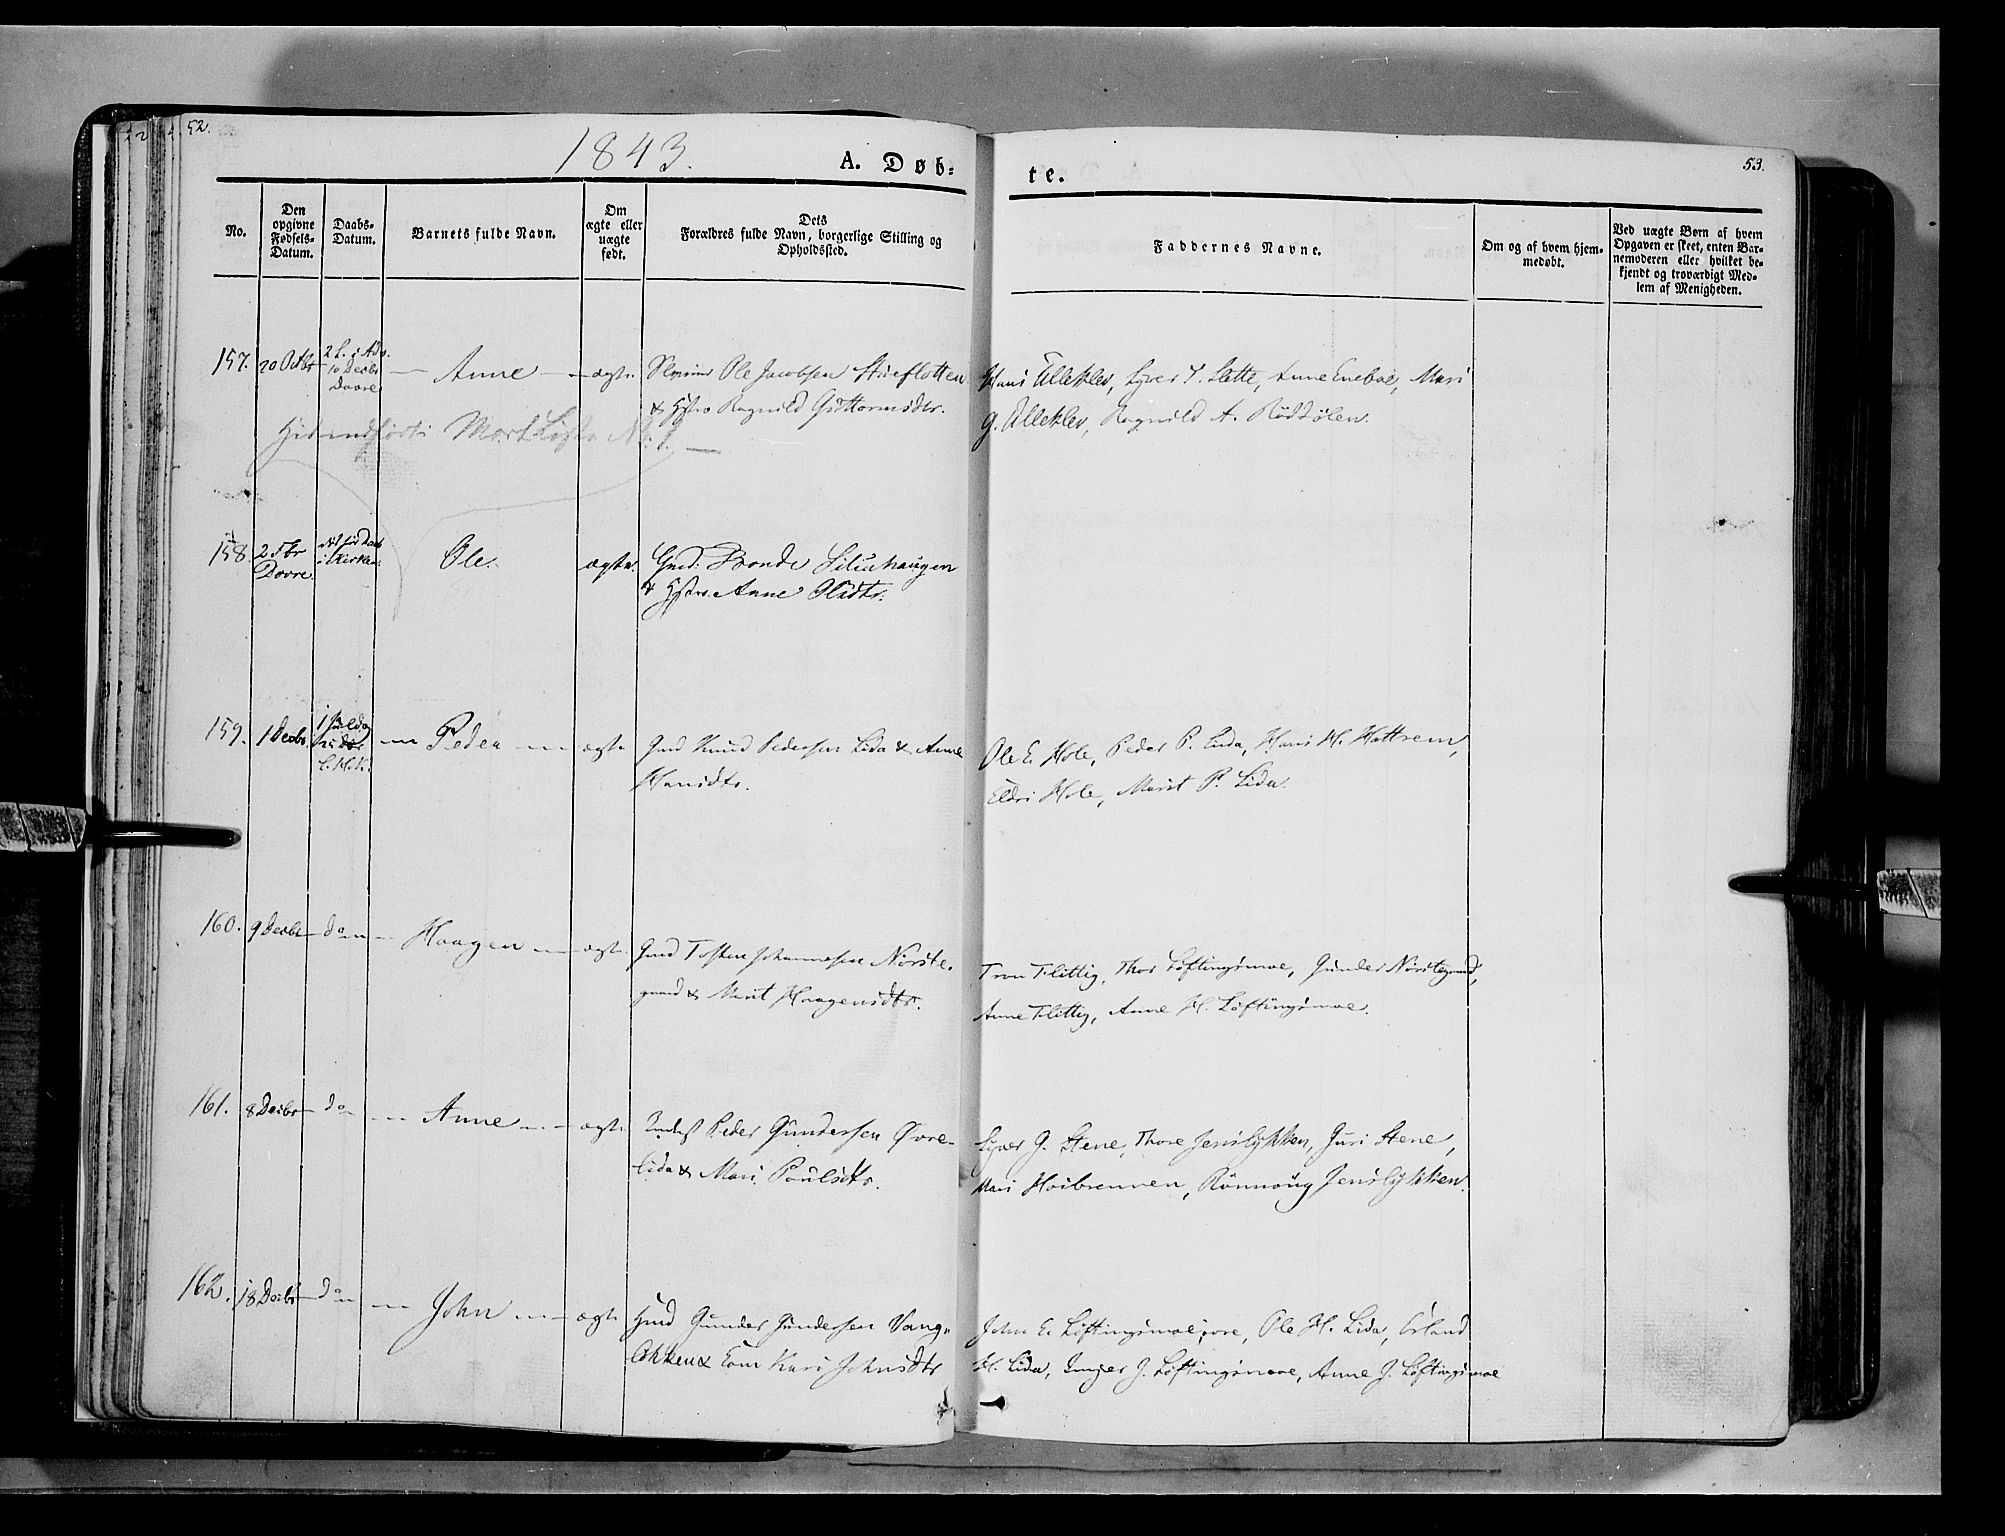 52.
1843.
A. Døb-
te.
53.
No.
Den opgivne Fødsels-Datum.
Daabs-Datum.
Barnets fulde Navn.
Om ægte eller uægte født.
Dets Forældres fulde Navn, borgerlige Stilling og Opholdssted.
Faddernes Navne.
Om og af hvem hjem-
medøbt.
Ved uægte Børn af hvem
Opgaven er skeet, enten Bar-
nemoderen eller hvilket be-
kjendt og troværdigt Med-
lem af Menigheden.
157. 20 Octbr 2 S. i Adv. 10 Decbr Dovre — Anne — ægte Ole Jacobsen Stueflotten
& Hstro Ragnild Guttormsdtr.
Hans Ulleklev, Syver T. Slette, Anne Eneboe, Mari
G. Ulleklev, Ragnild A. Rødsølen.
158. Dovre i Kirken Ole. ægte. Gmd: Bonde
& Hstro. Anne Olsdtr.
159. 1 Decbr 1 Juledag — Peder — ægte Gmd Knud Pedersen Lida & Anne
Hansdtr.
Ole E. Hole, Peder P. Lida, Hans H. Hattrem,
Eldri Hole, Marit P. Lida.
160. 9 Decbr — do — Haagen — ægte Gmd Tosten Johannesen Norste-
grund & Marit Haagensdtr.
Tron Flittig, Thor Løftingsmoe, Gunder Norstegrund,
Anne Flittig, Anne H. Løftingsmoe.
161. 8 Decbr — do — Anne — ægte Peder Gundersen Øvre-
lida & Mari Poulsdtr.
Syver G. Stene, Thore Jenslykken, Guri Stene,
Mari Hoibrennen, Rønnoug Jenslykken.
162. 18 Decbr — do — John — ægte Hmd Gunder Gundersen Vang-
løkken & Kari Johnsdtr
John E. Løftingsmoe øvre, Ole H. Lida, Erland
H. Lida, Inger J. Løftingsmoe, Anne J. Løftingsmoe